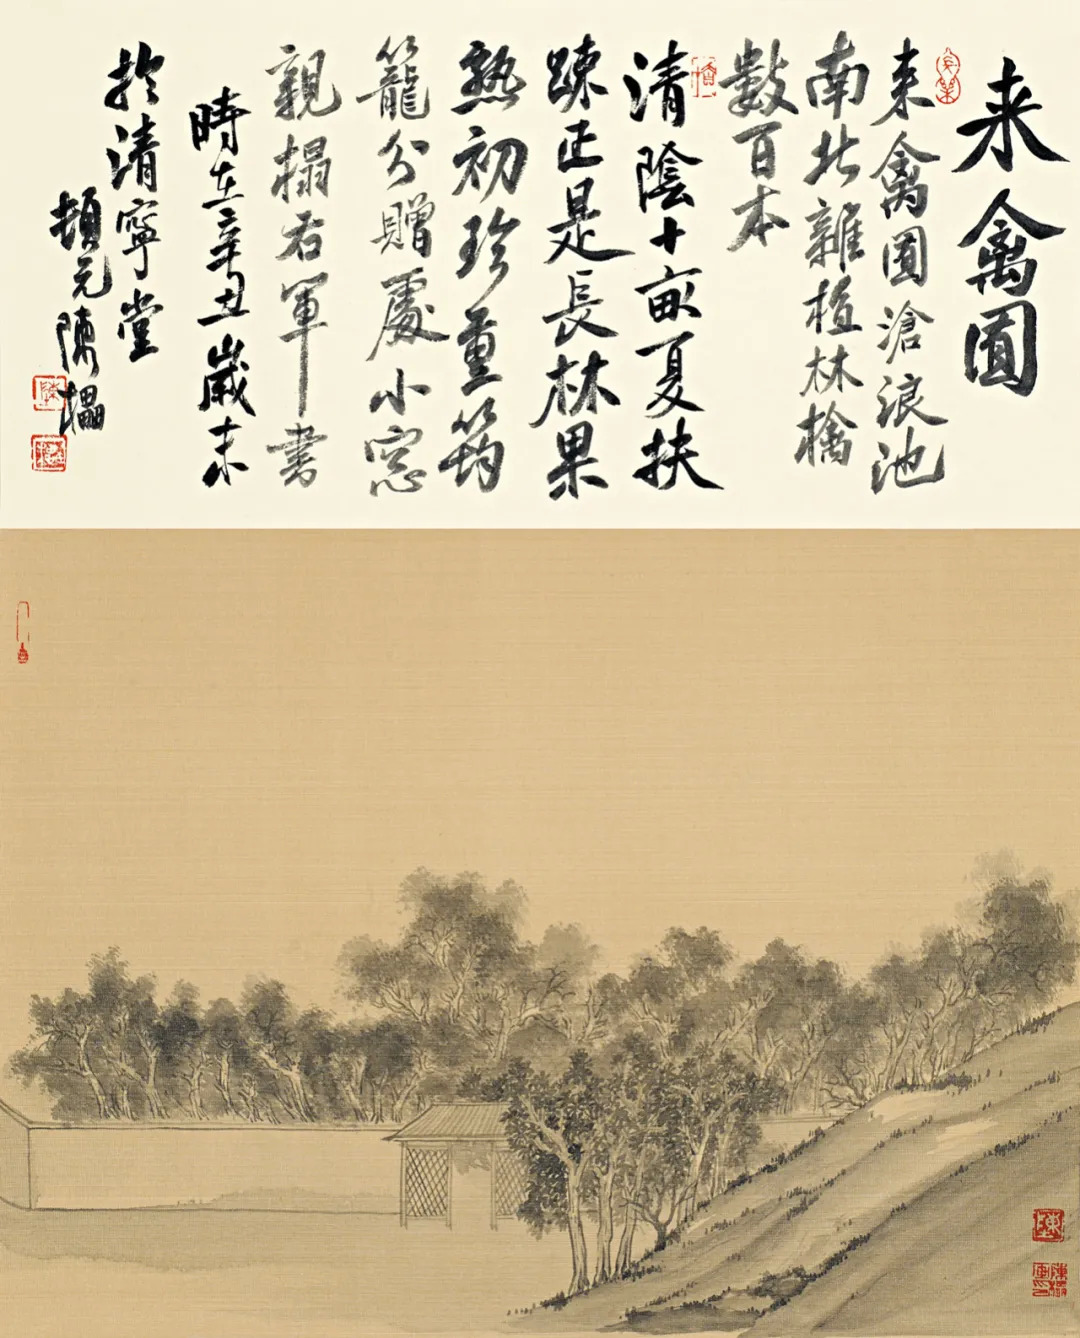 来禽囿
来禽囿滄浪池
南北雜植林檎
數百本
清陰十畝夏扶
疎正是長林果
熟初珍重筠
籠分贈處小窓
親搨右軍書
時在辛丑歲末
於清寧堂
頓元陳